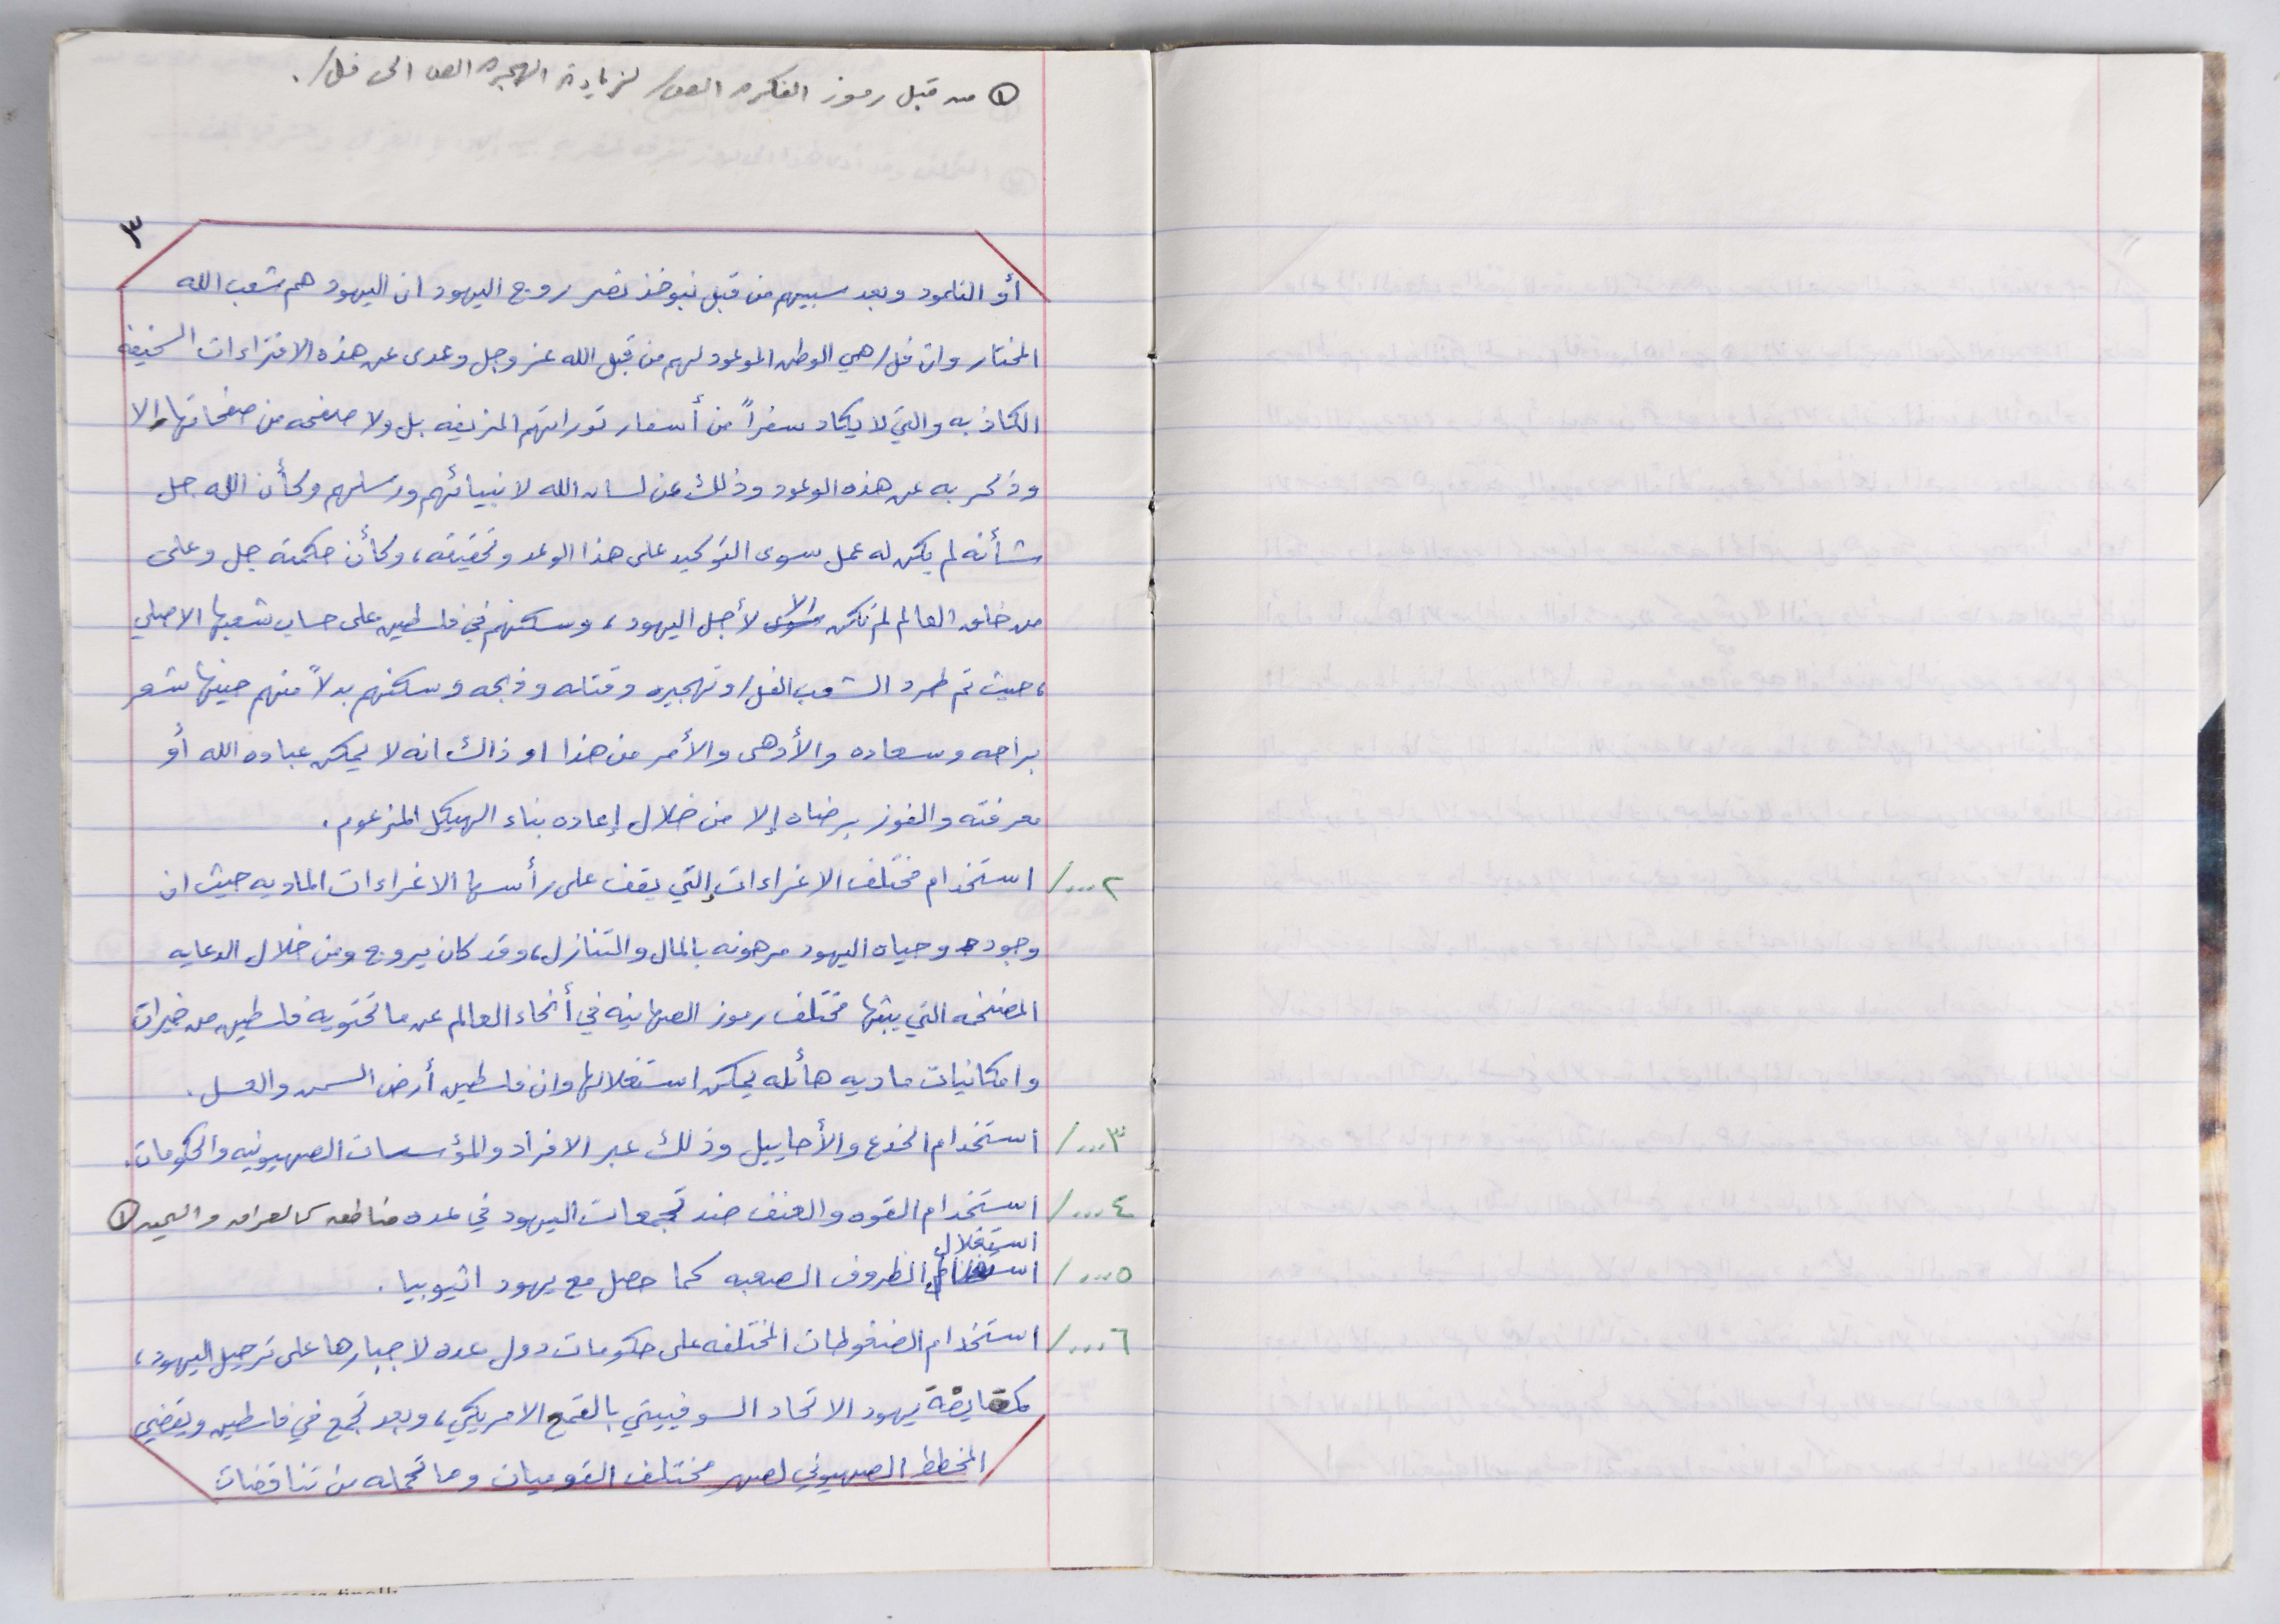 ① من قبل رموز الفكره الصـ/ لزيادة الهجره الصـ الى فلـ/.
٣
أو التلمود وبعد سبيهم من قبل نبوخذ نصر روج اليهود ان اليهود هم شعب الله
المختار وان فلـ/ هي الوطن الموعود لهم من قبل الله عز وجل وعدى عن هذه الافتراءات السخيفة
الكاذبه والتي لا يكاد سفراً من أسفار توراتهم المزيفه بل ولا صفحه من صفحاتها إلا
وذكر به عن هذه الوعود وذلك عن لسان الله لانبيائهم ورسلهم وكأن الله جل
شأنه لم يكن له عمل سوى التوكيد على هذا الوعد وتحقيقه، وكأن حكمته جل وعلى
من خلق العالم لم تكن إلا لأجل اليهود، وسكنهم في فلسطين على حساب شعبها الاصلي
، حيث تم طرد الشعب الفلـ/ وتهجيره وقتله وذبحه وسكنهم بدلاً منهم حينها شعر
براحه وسعاده والأدهى والأمر من هذا او ذاك انه لا يمكن عباده الله أو
معرفته والفوز برضاه إلا من خلال إعاده بناء الهيكل المزعوم.
٢.../ استخدام مختلف الاغراءات التي يقف على رأسها الاغراءات الماديه حيث ان
وجود وحياه اليهود مرهونه بالمال والتنازل، وقد كان يروج ومن خلال الدعايه
المضخمه التي يبثها مختلف رموز الصهاينه في أنحاء العالم عن ما تحتويه فلسطين من خيرات
وامكانيات ماديه هائله يمكن استغلالها وان فلسطين أرض السمن والعسل.
٣.../ استخدام الخدع والأحابيل وذلك عبر الافراد والمؤسسات الصهيونيه والحكومات.
٤.../ استخدام القوه والعنف ضد تجمعات اليهود في عده مناطق كالعراق واليمن ①
استغلال
٥.../ الظروف الصعبه كما حصل مع يهود اثيوبيا.
٦.../ استخدام الضغوطات المختلفه على حكومات دول عده لاجبارها على ترحيل اليهود،
كمقايضة يهود الاتحاد السوفييتي بالقمح الامريكي، وبعد تجمع في فلسطين ويقضي
المخطط الصهيوني لصهر مختلف القوميات وما تحمله من تناقضات